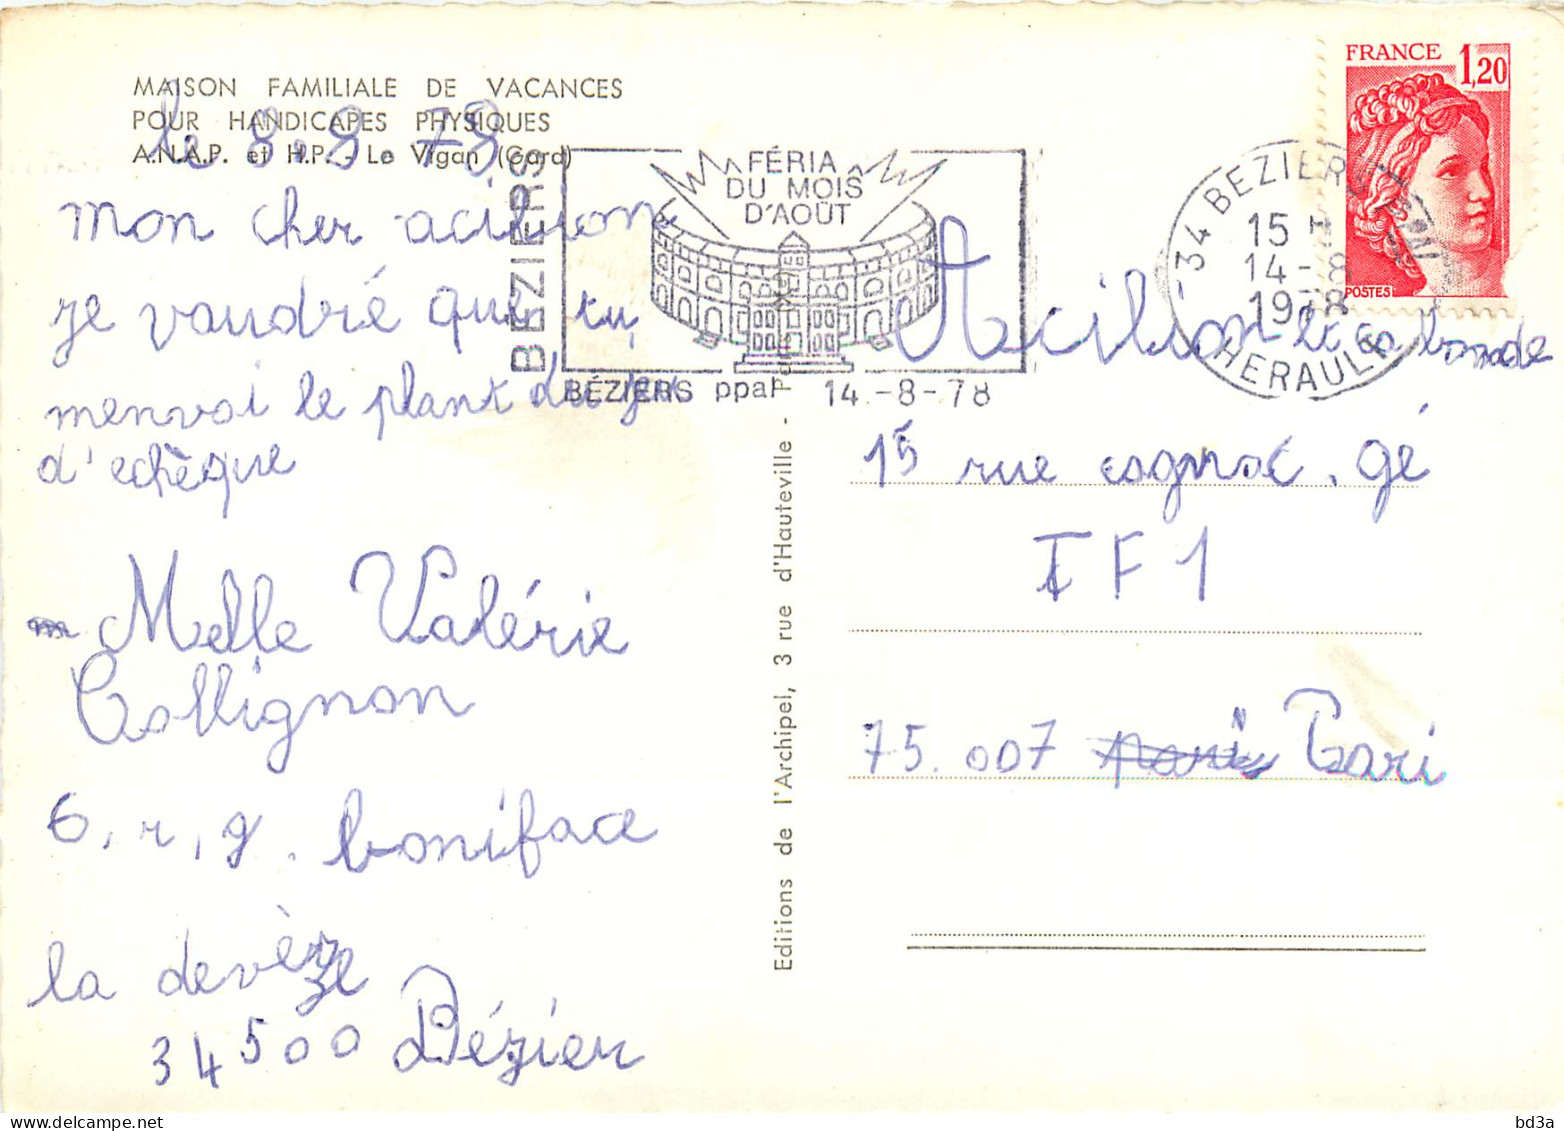 MAISON FAMILIALE DE VACANCES
POUR HANDICAPES PHYSIQUES
A.N.A.P. et H.P. - Le Vigan (Gard)
le 8.8 78
mon cher acilion
je vaudré que tu
menvoi le plant du jeu
d'echèque
Melle Valérie
Collignon
6, r, g. boniface
la devèze
34500 Bézier
BEZIERS
FÉRIA
DU MOIS
D'AOÛT
BÉZIERS ppal 14-8-78
Editions de l'Archipel, 3 rue d'Hauteville -
34 BEZIERS
15 H
14-8
1978
HERAULT
FRANCE 1,20
POSTES
Acilion et sa bande
15 rue cognac. gé
TF1
75.007 pari Pari
bd3a